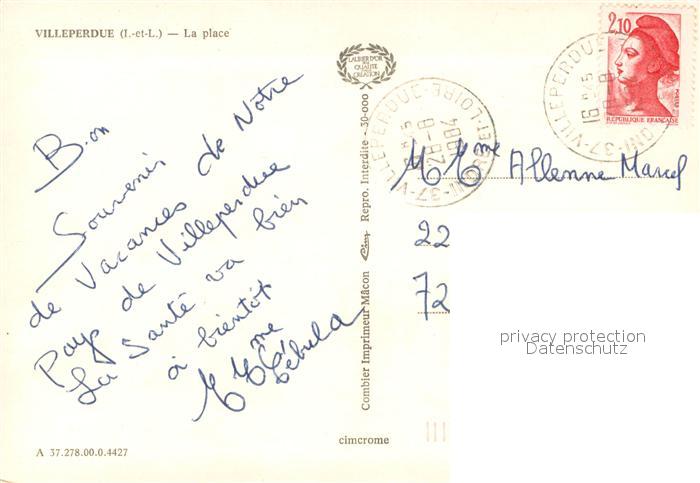 VILLEPERDUE (I.-et-L.) — La place
LAURIER D'OR
DE
QUALITÉ
CRÉATION
2,10
RÉPUBLIQUE FRANÇAISE
37-VILLEPERDUE
INDRE-ET-LOIRE
Bon
Souvenir
de Vacances de Notre
Pays de Villeperdue
La Santé va bien
à bientôt
M Mme
Cébula
M Mme Allenne Marcel
22
72
Combier Imprimeur Mâcon Repro. Interdite - 30-000
cimcrome
A 37.278.00.0.4427
privacy protection
Datenschutz